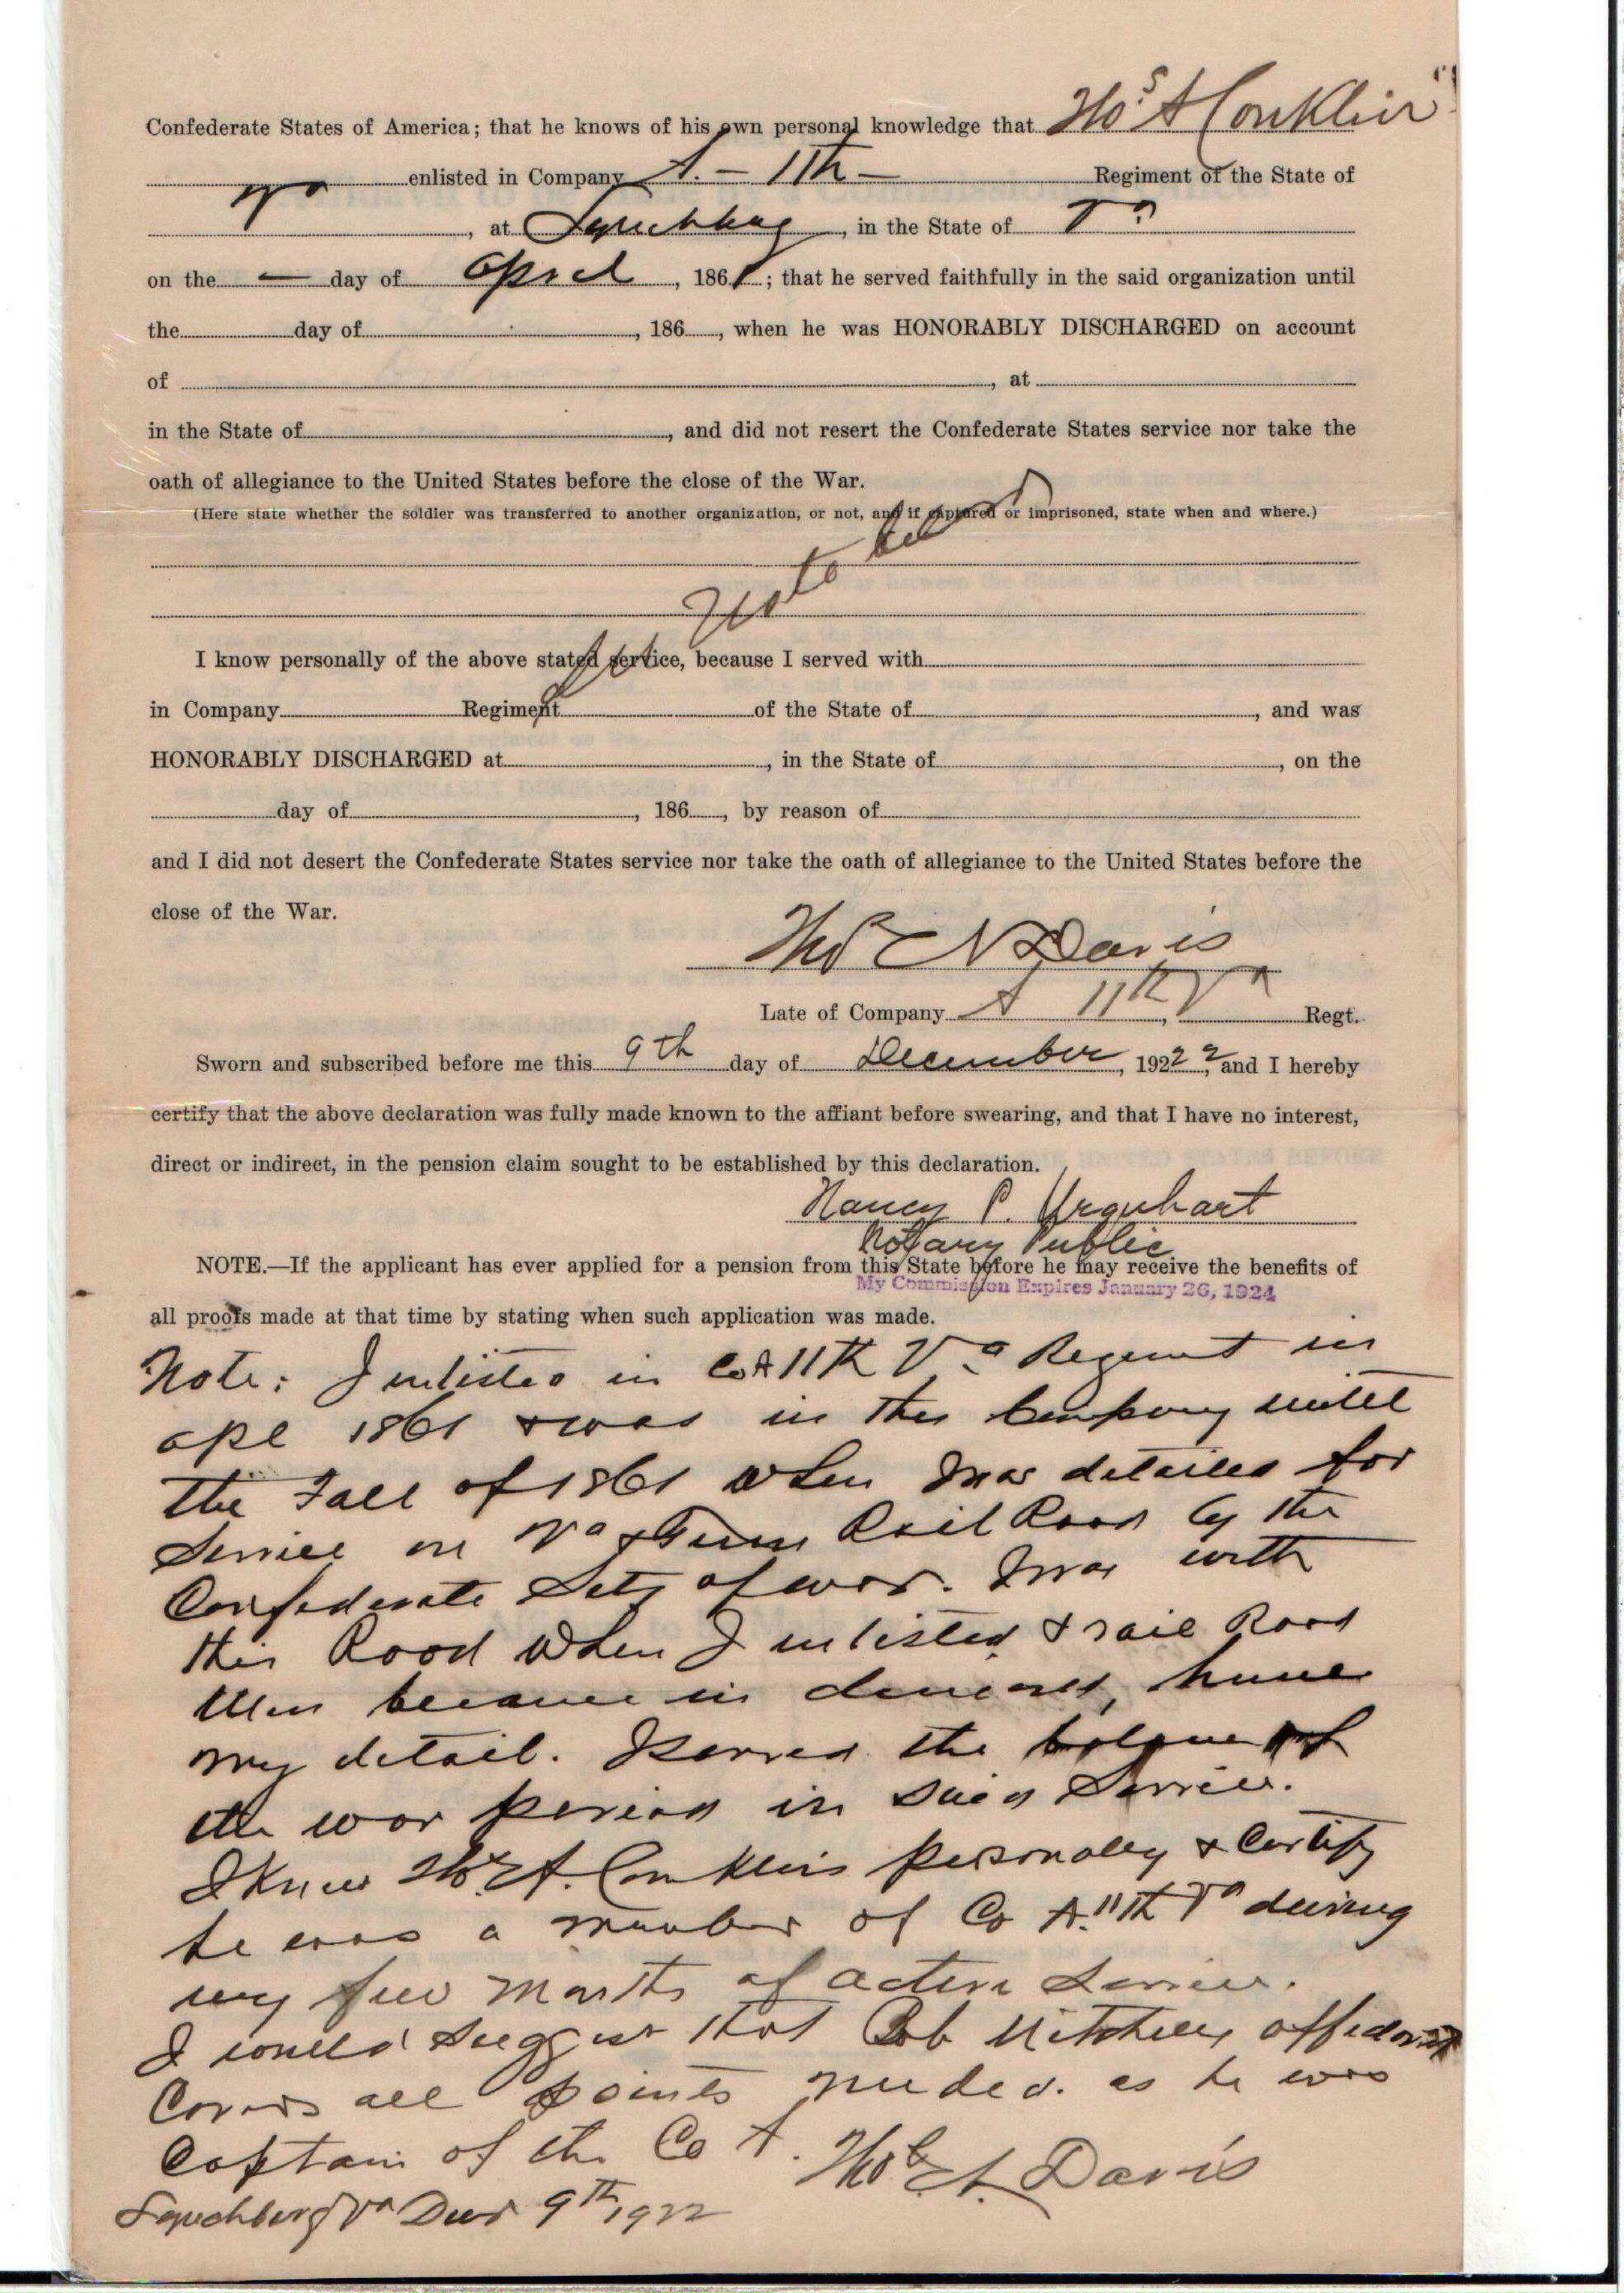 Confederate States of America; that he knows of his own personal knowledge that Thos A Conklin
enlisted in Company A. – 11th – Regiment of the State of
Va, at Lynchburg, in the State of Va
on the — day of April, 1861; that he served faithfully in the said organization until
the day of , 186 , when he was HONORABLY DISCHARGED on account
of , at
in the State of , and did not resert the Confederate States service nor take the
oath of allegiance to the United States before the close of the War.
(Here state whether the soldier was transferred to another organization, or not, and if captured or imprisoned, state when and where.)
See Note below
I know personally of the above stated service, because I served with
in Company Regiment of the State of , and was
HONORABLY DISCHARGED at , in the State of , on the
day of , 186 , by reason of
and I did not desert the Confederate States service nor take the oath of allegiance to the United States before the
close of the War.
Thos N Davis
Late of Company A 11th, Va Regt.
Sworn and subscribed before me this 9th day of December, 19222, and I hereby
certify that the above declaration was fully made known to the affiant before swearing, and that I have no interest,
direct or indirect, in the pension claim sought to be established by this declaration.
Nancy P. Urquhart
Notary Public
NOTE.—If the applicant has ever applied for a pension from this State before he may receive the benefits of
My Commission Expires January 26, 1924
all proofs made at that time by stating when such application was made.
Note: I enlisted in Co A 11th Va Regiment in
apl 1861 & was in the Company until
the Fall of 1861 when I was detailed for
Service on Va & Tenn Rail Road by the
Confederate Secty of war. I was with
this Road when I enlisted & rail Road
Men became in demand, hence
my detail. I served the balance of
the war period in said Service.
I knew Thos. A. Conklin personally & Certify
he was a member of Co A. 11th Va during
my few months of active Service.
I would suggest that Bob Mitchells affidavit
Covers all points needed. as he was
Captain of the Co A. Thos. N. Davis
Lynchburg Va Decr 9th 1922